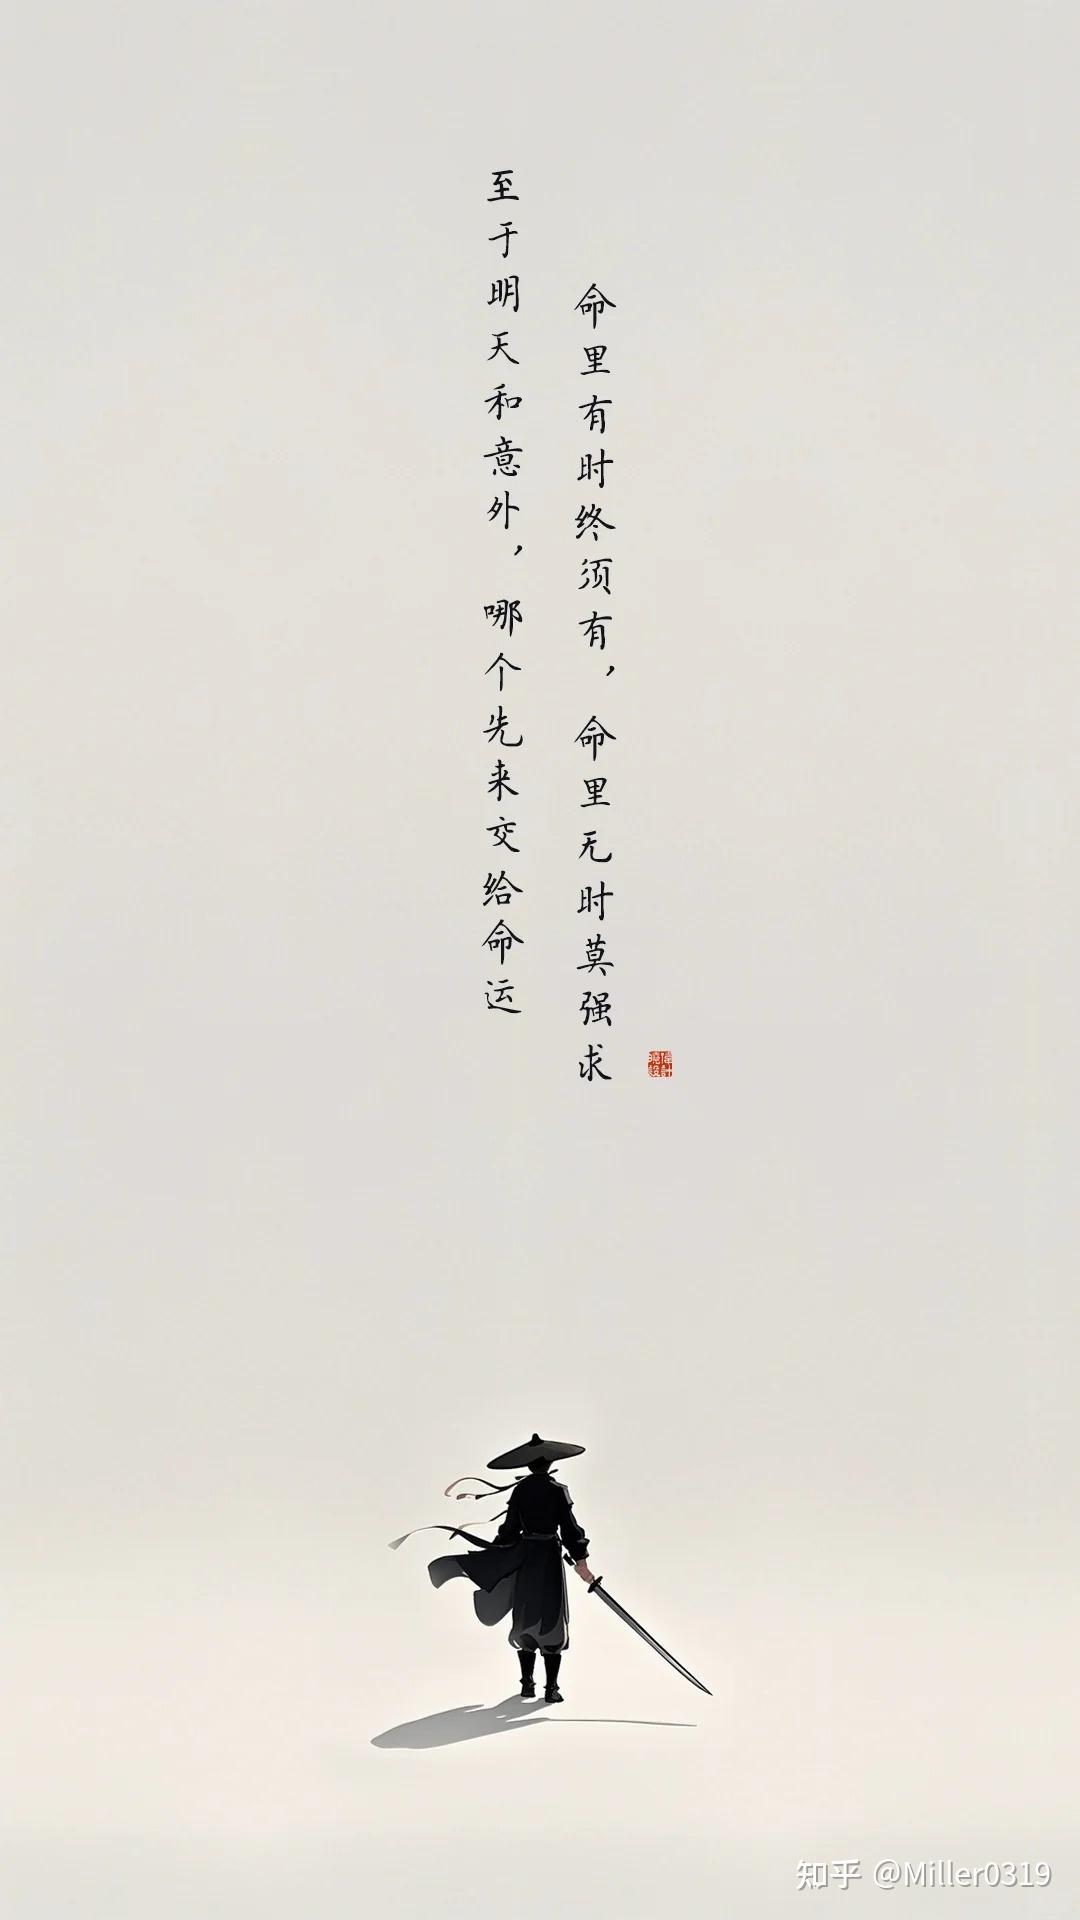 至于明天和意外，哪个先来交给命运
命里有时终须有，命里无时莫强求
知乎 @Miller0319